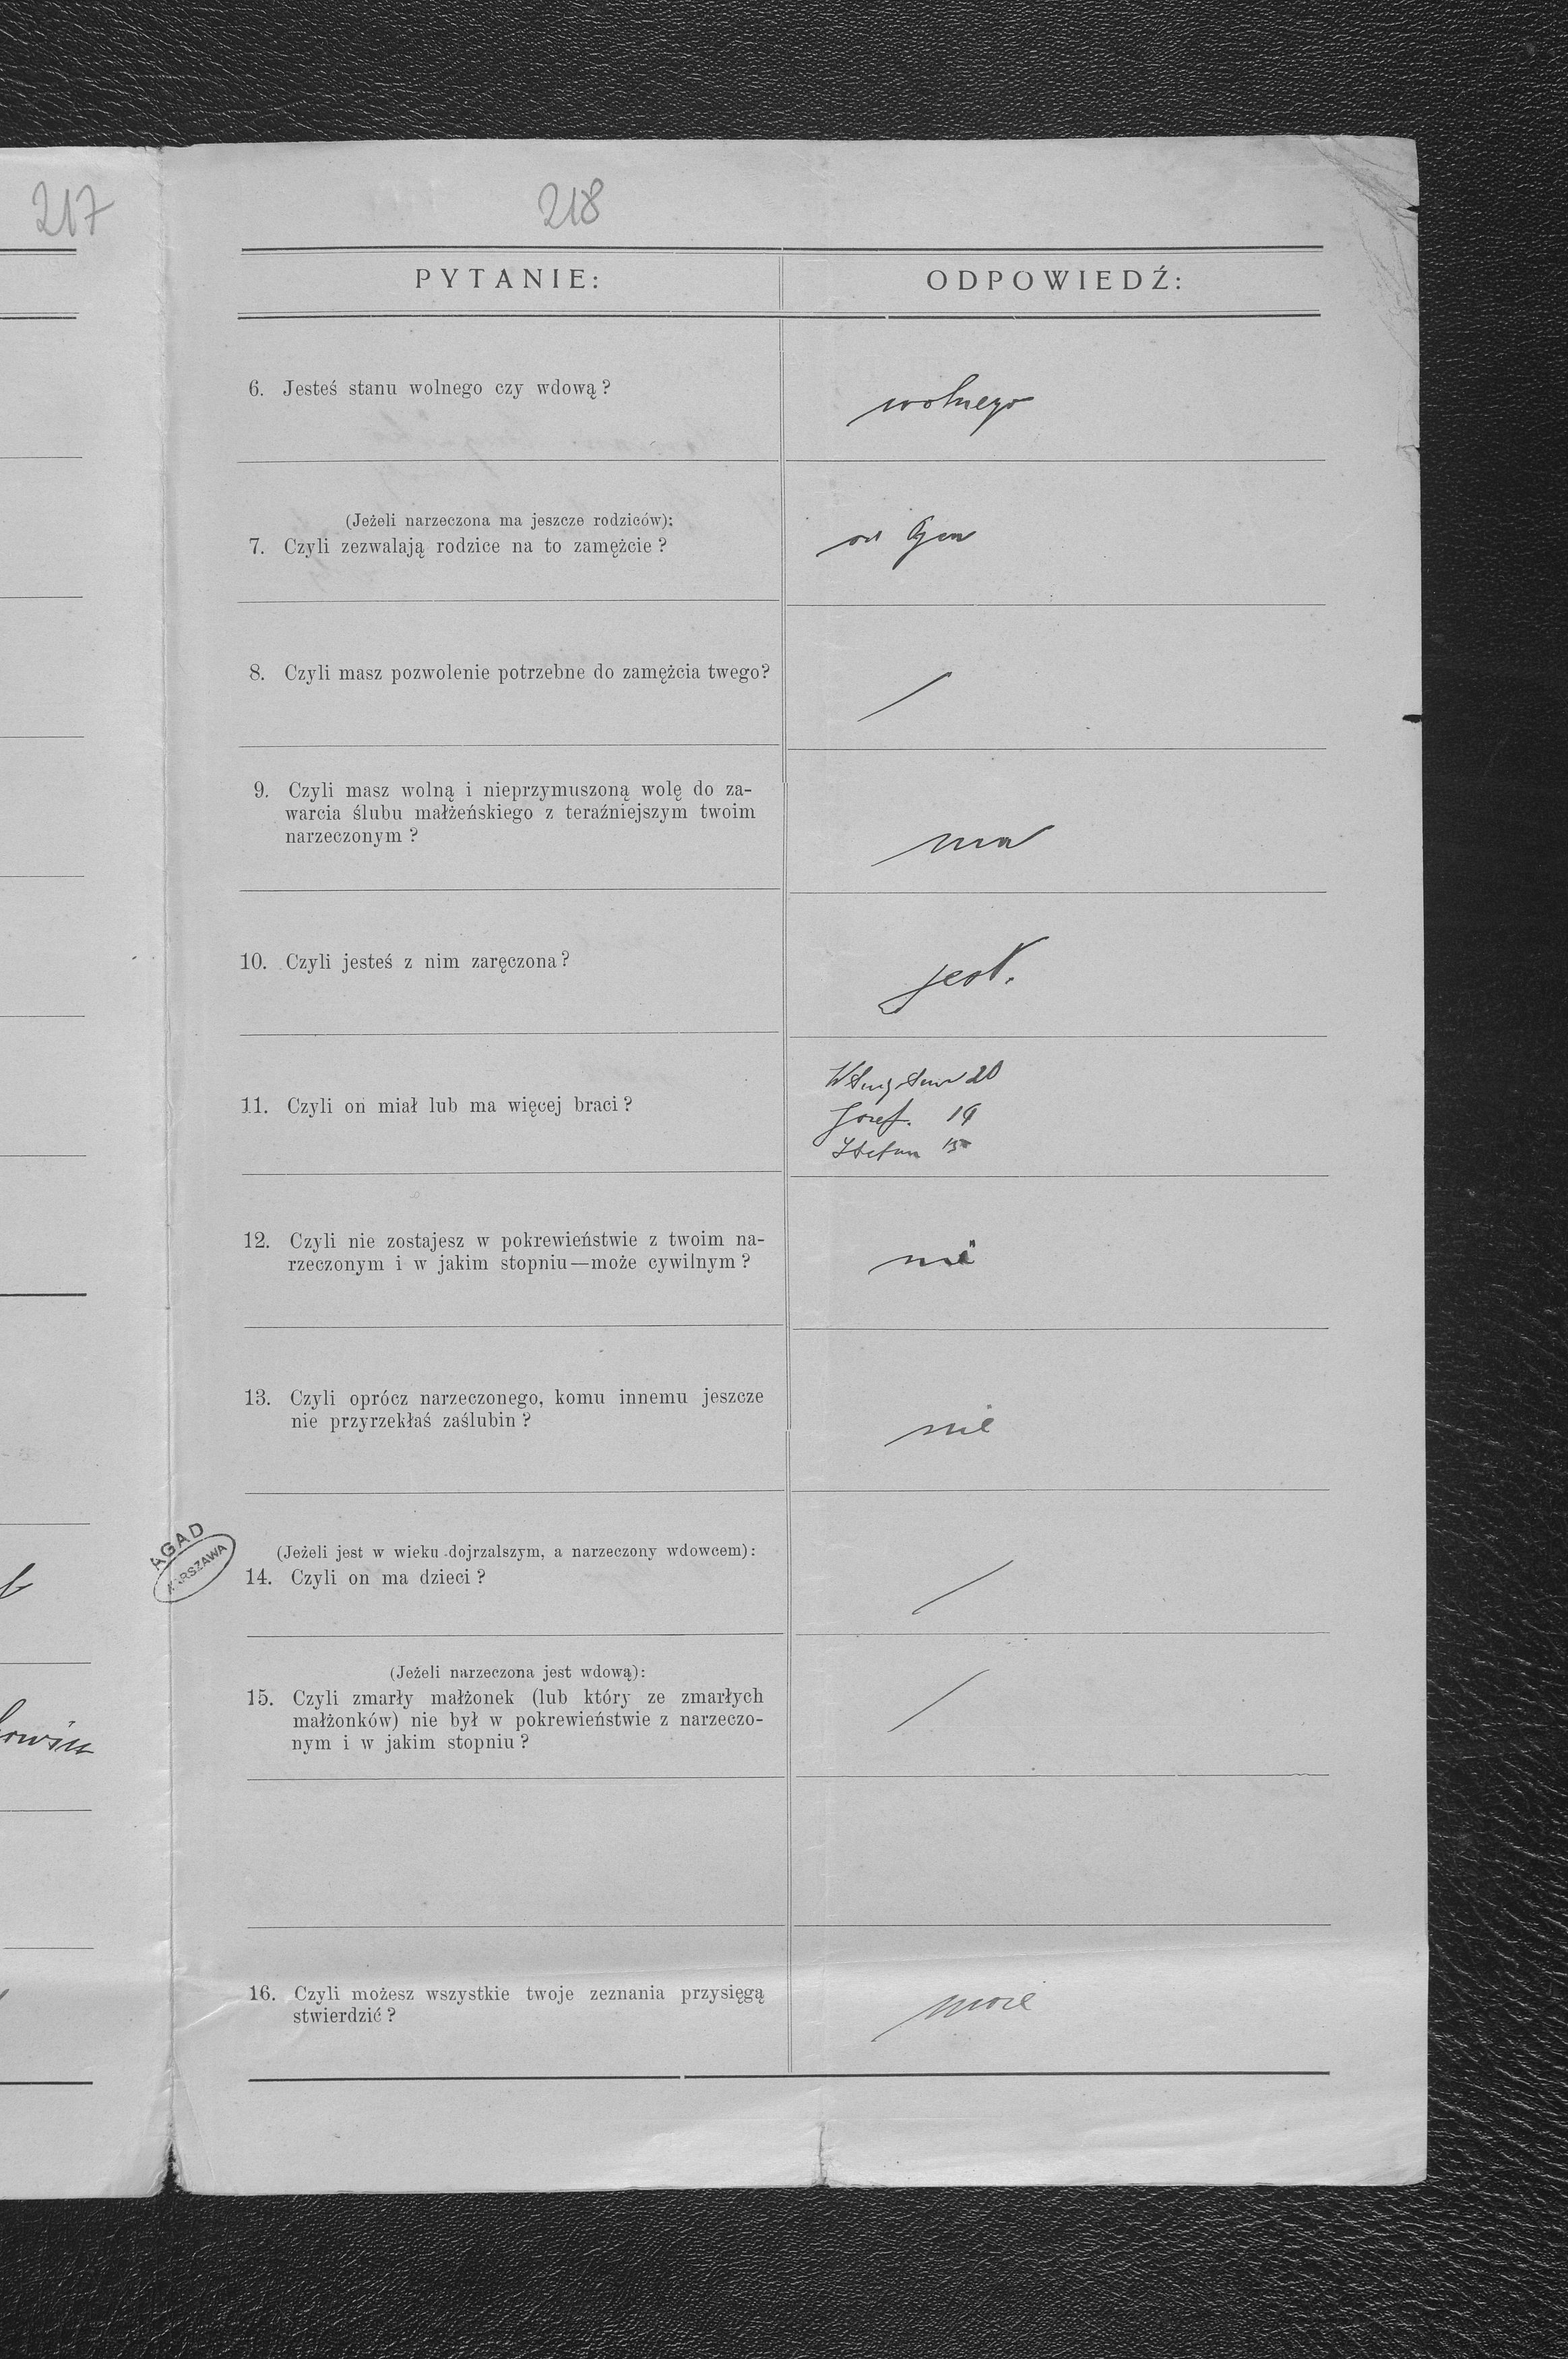 217
218
PYTANIE:
ODPOWIEDŹ:
6. Jesteś stanu wolnego czy wdową?
wolnego
(Jeżeli narzeczona ma jeszcze rodziców):
7. Czyli zezwalają rodzice na to zamężcie?
8. Czyli masz pozwolenie potrzebne do zamężcia twego?
/
9. Czyli masz wolną i nieprzymuszoną wolę do za-
warcia ślubu małżeńskiego z teraźniejszym twoim
narzeczonym?
ma
10. Czyli jesteś z nim zaręczona?
jest.
11. Czyli on miał lub ma więcej braci?
20
Józef. 19
Stefan 15
12. Czyli nie zostajesz w pokrewieństwie z twoim na-
rzeczonym i w jakim stopniu—może cywilnym?
nie
13. Czyli oprócz narzeczonego, komu innemu jeszcze
nie przyrzekłaś zaślubin?
nie
AGAD
WARSZAWA
(Jeżeli jest w wieku dojrzalszym, a narzeczony wdowcem):
14. Czyli on ma dzieci?
/
(Jeżeli narzeczona jest wdową):
15. Czyli zmarły małżonek (lub który ze zmarłych
małżonków) nie był w pokrewieństwie z narzeczo-
nym i w jakim stopniu?
/
16. Czyli możesz wszystkie twoje zeznania przysięgą
stwierdzić?
może